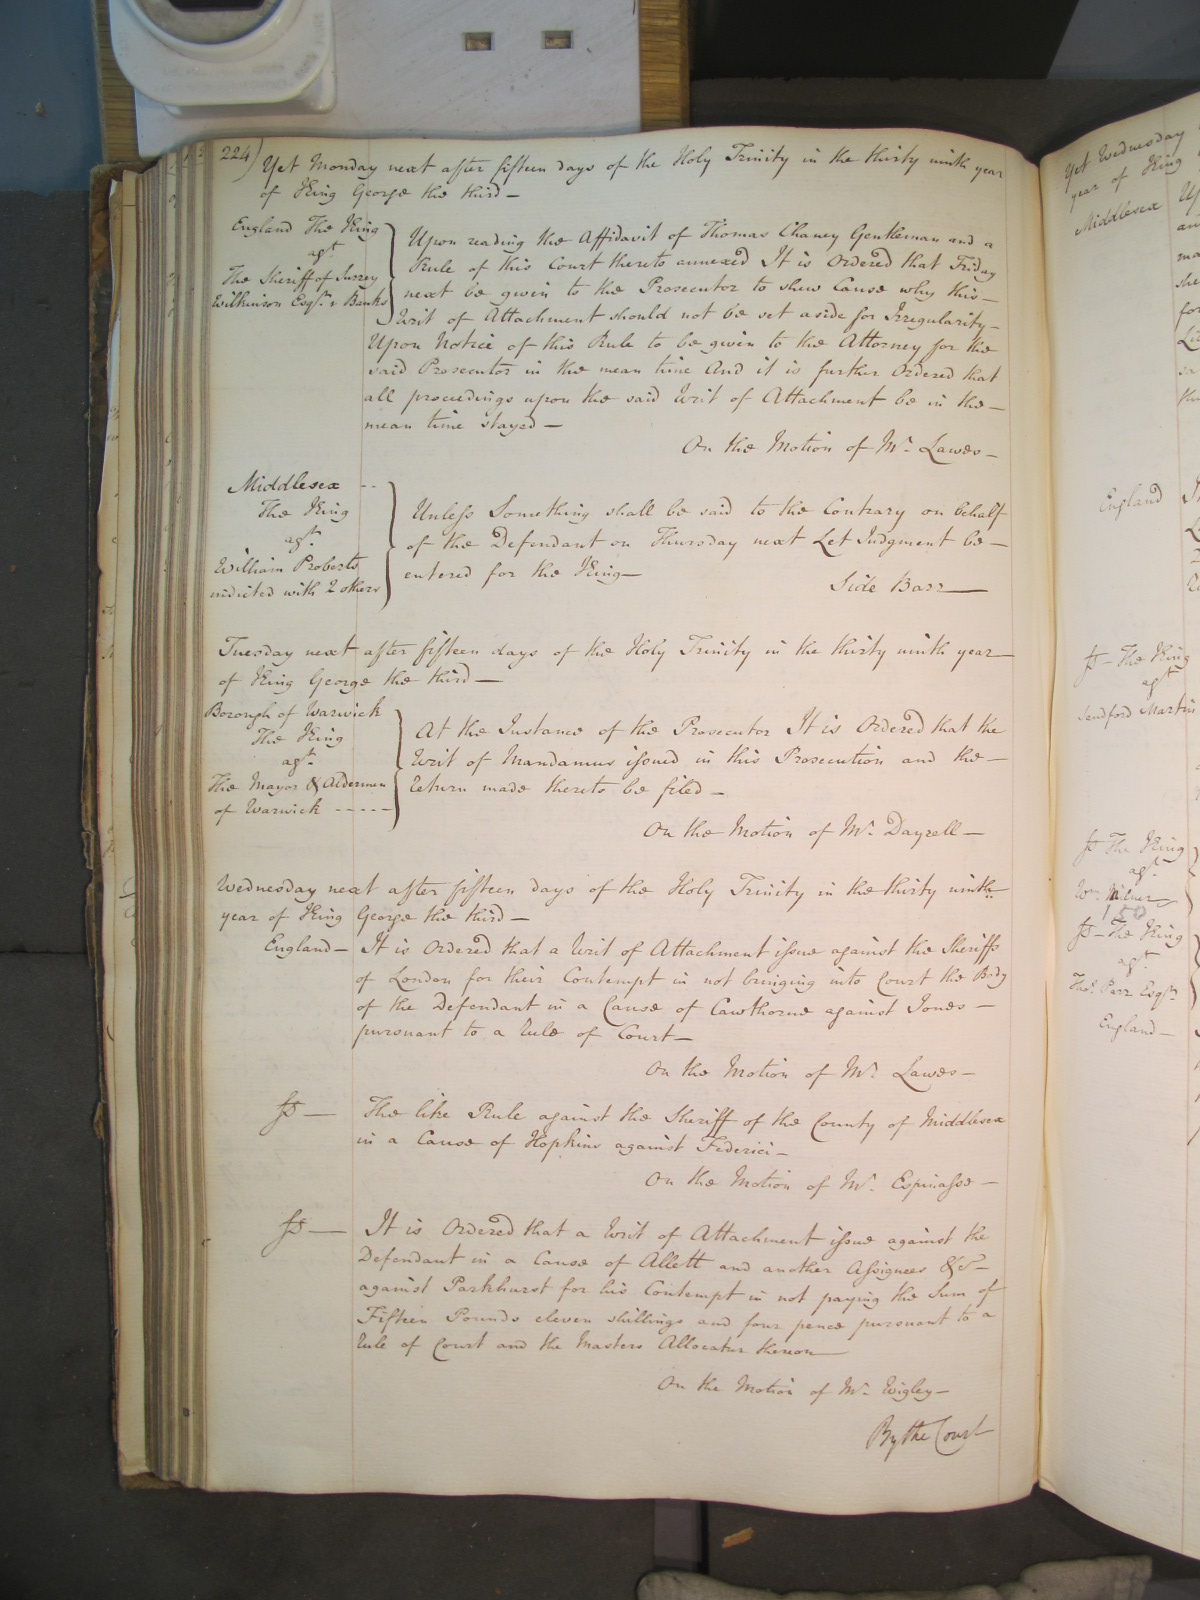 224) Yet Monday next after fifteen days of the Holy Trinity in the thirty ninth year
of King George the third —
England The King
agt
The Sheriff of Surrey
Wilkinson Esqr. v Banks
Upon reading the Affidavit of Thomas Chaney Gentleman and a
Rule of this Court thereto annexed It is Ordered that Friday
next be given to the Prosecutor to shew Cause why this —
Writ of Attachment should not be set aside for Irregularity —
Upon Notice of this Rule to be given to the Attorney for the
said Prosecutor in the mean time And it is further Ordered that
all proceedings upon the said Writ of Attachment be in the —
mean time stayed —
On the Motion of Mr. Lawes —
Middlesex --
The King
agt.
William Roberts
indicted with 2 others
Unless Something shall be said to the Contrary on behalf
of the Defendant on Thursday next Let Judgment be —
entered for the King —
Side Barr —
Tuesday next after fifteen days of the Holy Trinity in the thirty ninth year —
of King George the third —
Borough of Warwick
The King
agt.
The Mayor & Aldermen
of Warwick -----
At the Instance of the Prosecutor It is Ordered that the
Writ of Mandamus issued in this Prosecution and the —
Return made thereto be filed —
On the Motion of Mr. Dayrell —
Wednesday next after fifteen days of the Holy Trinity in the thirty ninth
year of King George the third —
England — It is Ordered that a Writ of Attachment issue against the Sheriffs
of London for their Contempt in not bringing into Court the Body
of the Defendant in a Cause of Cawthorne against Jones —
pursuant to a Rule of Court —
On the Motion of Mr. Lawes —
Ss — The like Rule against the Sheriff of the County of Middlesex
in a Cause of Hopkins against Federici —
On the Motion of Mr. Espinasse —
Ss — It is Ordered that a Writ of Attachment issue against the
Defendant in a Cause of Allett and another Assignees &c —
against Parkhurst for his Contempt in not paying the Sum of
Fifteen Pounds eleven shillings and four pence pursuant to a
Rule of Court and the Masters Allocatur thereon —
On the Motion of Mr. Wigley —
By the Court
Yet Wednesday
year of King
Middlesex
England
Ss — The King
agt
Sandford Martin
Ss The King
agt.
Wm. Milner
150
Ss — The King
agt.
Thos. Parr Esqr.
England —